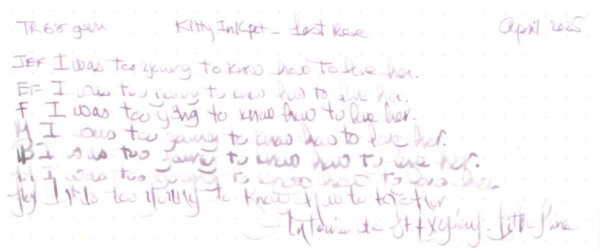 TR 68 gsm Kitty InkPot - Lost Rose April 2025
JEF I was too young to know how to love her.
EF I was too young to know how to love her.
F I was too young to know how to love her.
M I was too young to know how to love her.
B I was too young to know how to love her.
I was too young to know how to love her.
I was too young to know how to love her
- Antoine de St Exupéry - Little Prince